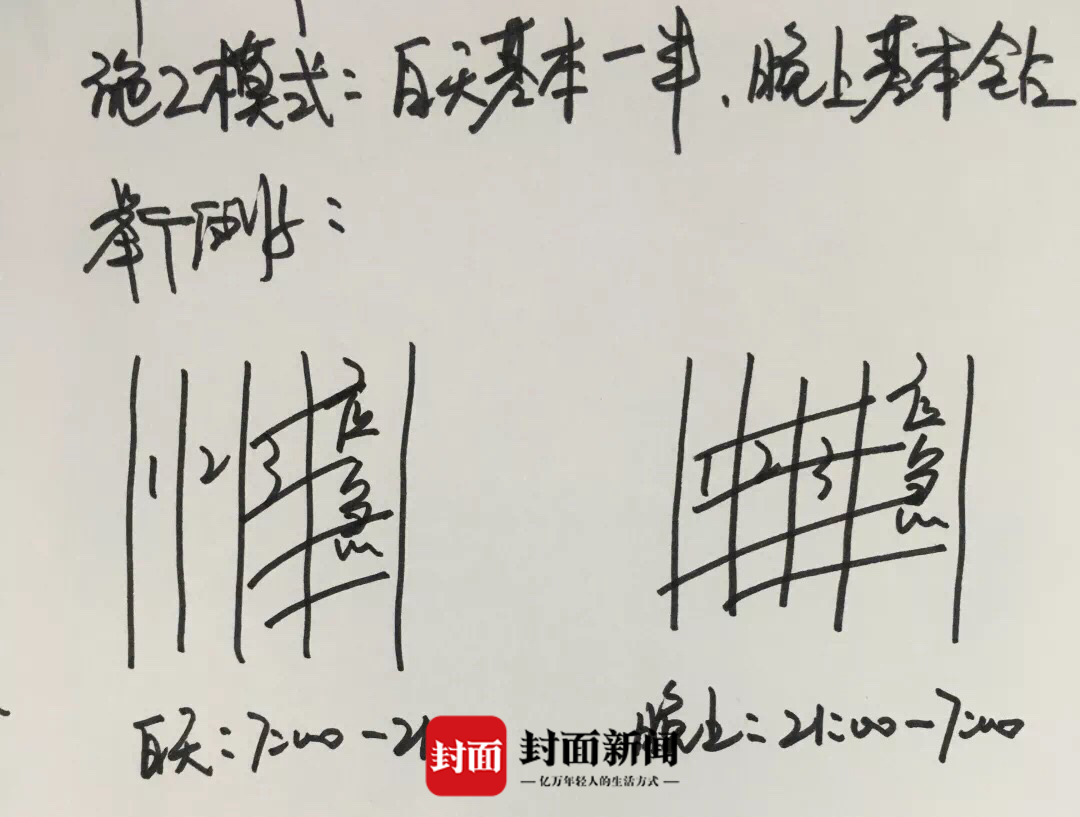 施工模式：白天基本一半、晚上基本全占
单下面时：
1 2 3 应急
1 2 3 应急
白天：7:00-21
晚上：21:00-7:00
封面 封面新闻
亿万年轻人的生活方式